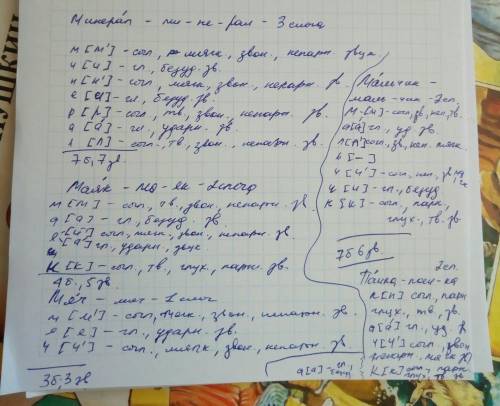 Минерал - ми-не-рал - 3 слога
м [м'] - согл., мягк, звон., непарн. звук
и [и] - гл., безуд. зв.
н [н'] - согл., мягк, звон., непарн. зв.
е [и] - гл., безуд. зв.
р [р] - согл., тв, звон., непарн. зв.
а [а] - гл., ударн. зв.
л [л] - согл., тв, звон., непарн. зв.
7б, 7зв
Маяк - ма-як - 2 слога
м [м] - согл., тв, звон., непарн. зв.
а [а] - гл., безуд. зв.
[й'] согл, мягк., звон., непарн зв
[а] гл, ударн, звук
к [к] - согл., тв, глух., парн. зв.
4б, 5зв.
Мяч - мяч - 1 слог
м [м'] - согл, мягк., звон., непарн. зв.
я [а] - гл., ударн. зв.
ч [ч'] - согл., мягк,
3б, 3зв
Мальчик -
маль-чик - 2сл.
М-[м] - согл, зв, неп, тв.
а [а] гл, уд. зв
л [л'] согл, зв, неп. мягк
ь [-]
и [и] - гл, безуд
к [к] - согл, парн,
глух, тв. зв
7б 6зв.
2сл.
Пайка - пай-ка
п [п] согл, парн
глух, тв, зв.
а [а] гл, уд. зв
й [й'] согл, звон
непарн, мягк зв
к [к] согл, парн
глух, тв. зв
а [а] гл,